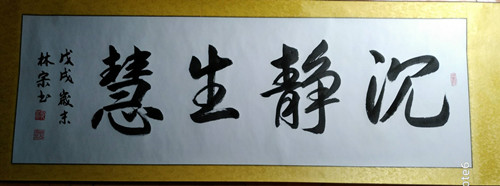 沉静生慧
戊戌岁末
林宗书